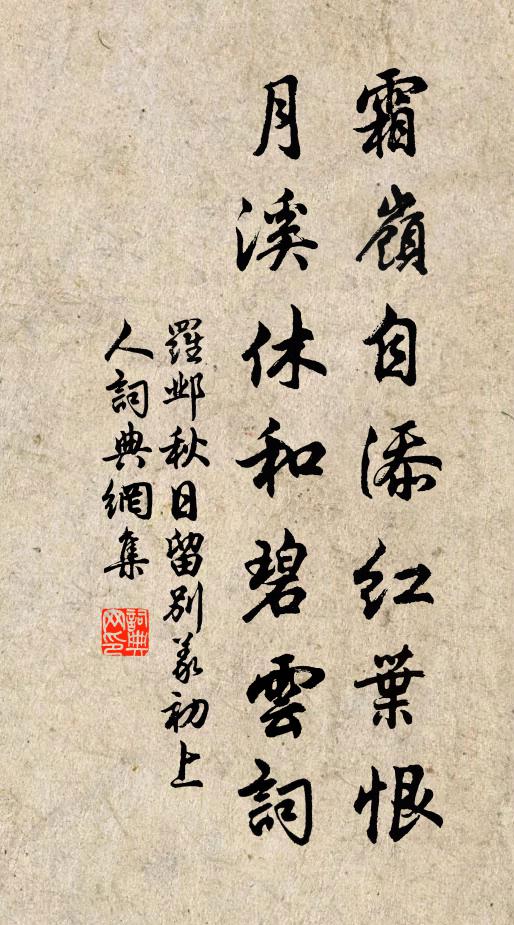 霜嶺自添红葉恨
月溪休和碧雲詞
羅邺秋日留别義初上
人詞典網集
詞典
网印